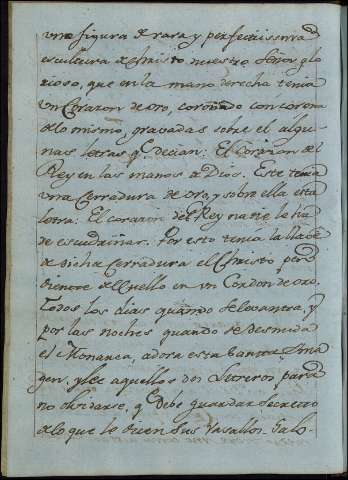 una figura de rara y perfectissima
escultura de christo nuestro Señor glo
rioso, que en la mano derecha tenia
un Corazon de oro, coronado con corona
de lo mismo, gravadas sobre el algu-
nas letras q.e decian: El Corazon del
Rey en las manos de Dios. Este tenia
una Cerradura de oro, y sobre ella esta
letra: El corazon del Rey nadie le ha
de escudriñar. Por esto tenía la llave
de dicha Cerradura el Christo
de el Cuello en un Cordon de oro.
Todos los dias quando se levanta, y
por las noches quando se desnuda
el Monarca, adora esta Santa Ima
gen, y lee aquellos dos Letreros para
no olvidarse, q.e debe guardar secreto
de lo que le dicen sus Vasallos. Salo-